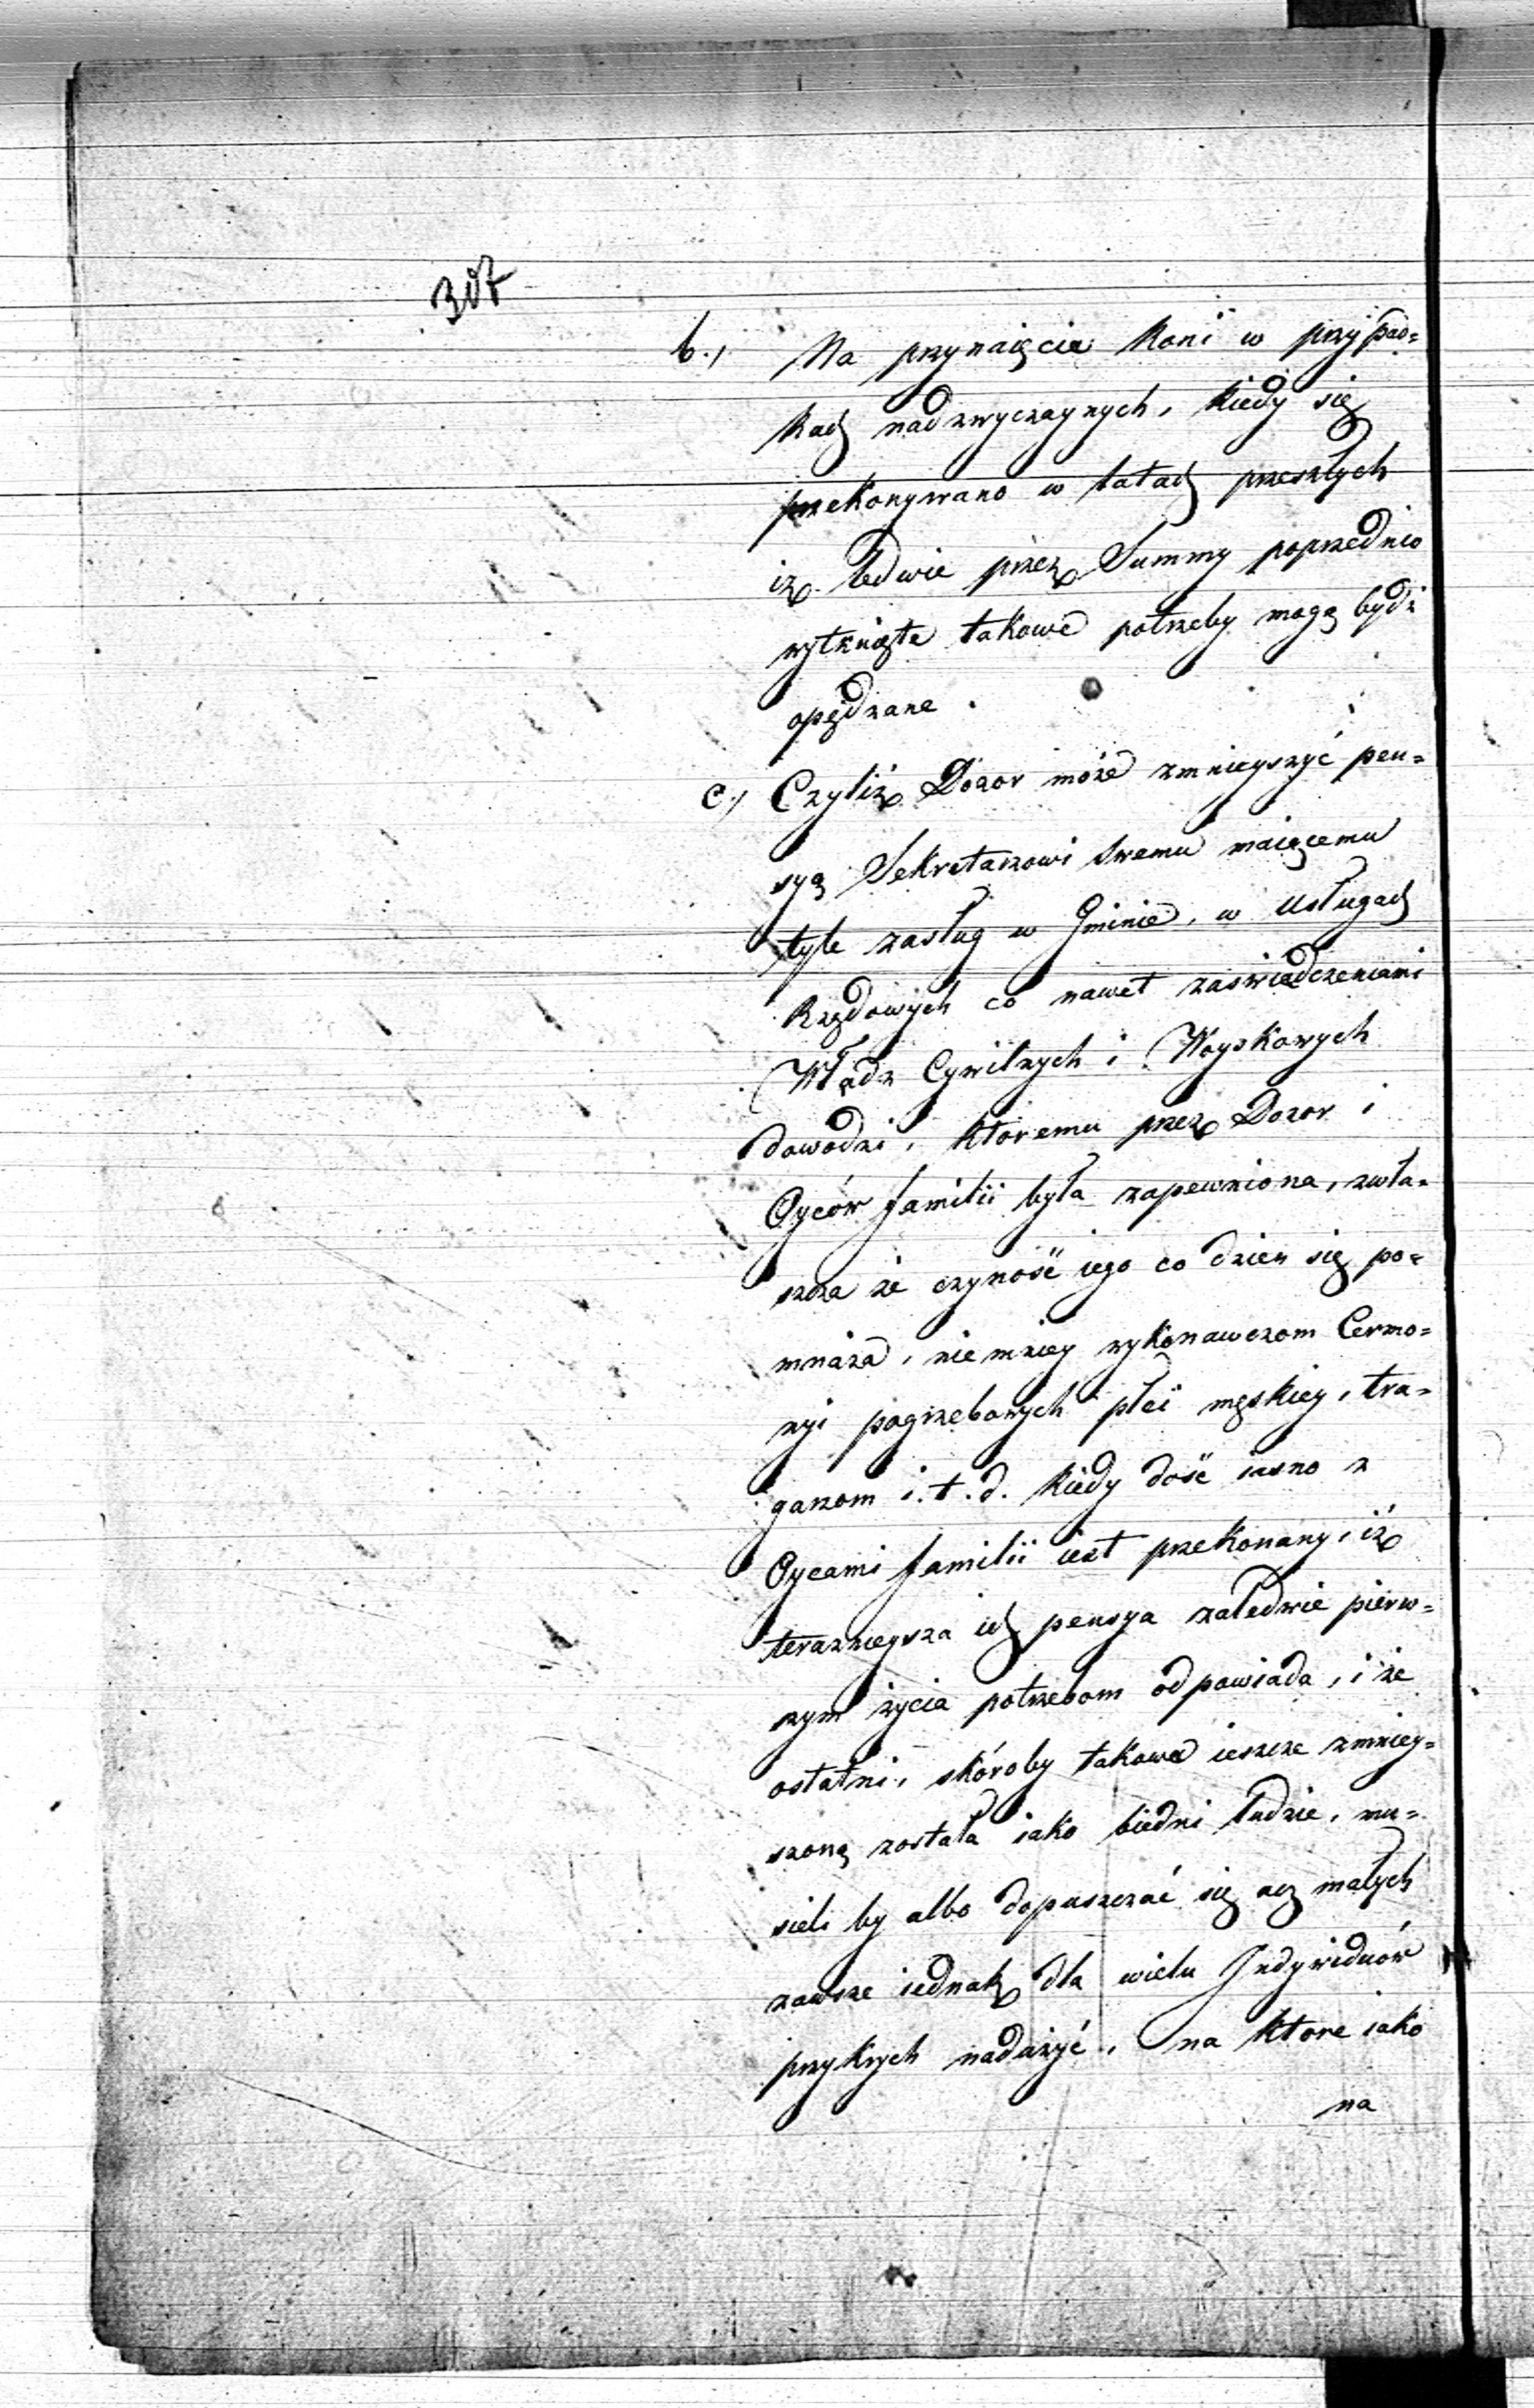 307
b./ Na przynaięcie Koni w przypad=
kach nadzwyczaynych, kiedy się
przekonywano w latach przeszłych
iż ledwie przez Summy poprzednio
wytknięte takowe potrzeby mogą bydź
opędzane.
c./ Czyliż Dozor może zmnieyszyć pen=
syą Sekretarzowi swemu maiącemu
tyle zasług w Gminie, w usługach
Rządowych co nawet zaswiadczeniami
Władz Cywilnych i Woyskowych
dowodzi, ktoremu przez Dozor i
Oyców familii była zapewniona, zwła=
szcza że czyność iego co dzien się po=
mnaża, nie mniey wykonawczom Cermo=
nyi pogrzebowych płci męskiey, tra=
garzom i.t.d. kiedy dość iasno z
Oycami familii iest przekonany, iż
terazneysza ich pensya zaledwie pierw=
szym życia potrzebom odpowiada, i że
ostatni, skóroby takowa ieszcze zmniey=
szoną została iako biedni ludzie, mu=
sieli by albo dopuszczać się acz małych
zawsze iednak dla wielu Indywiduów
przykrych nadużyć, na ktore iako
na